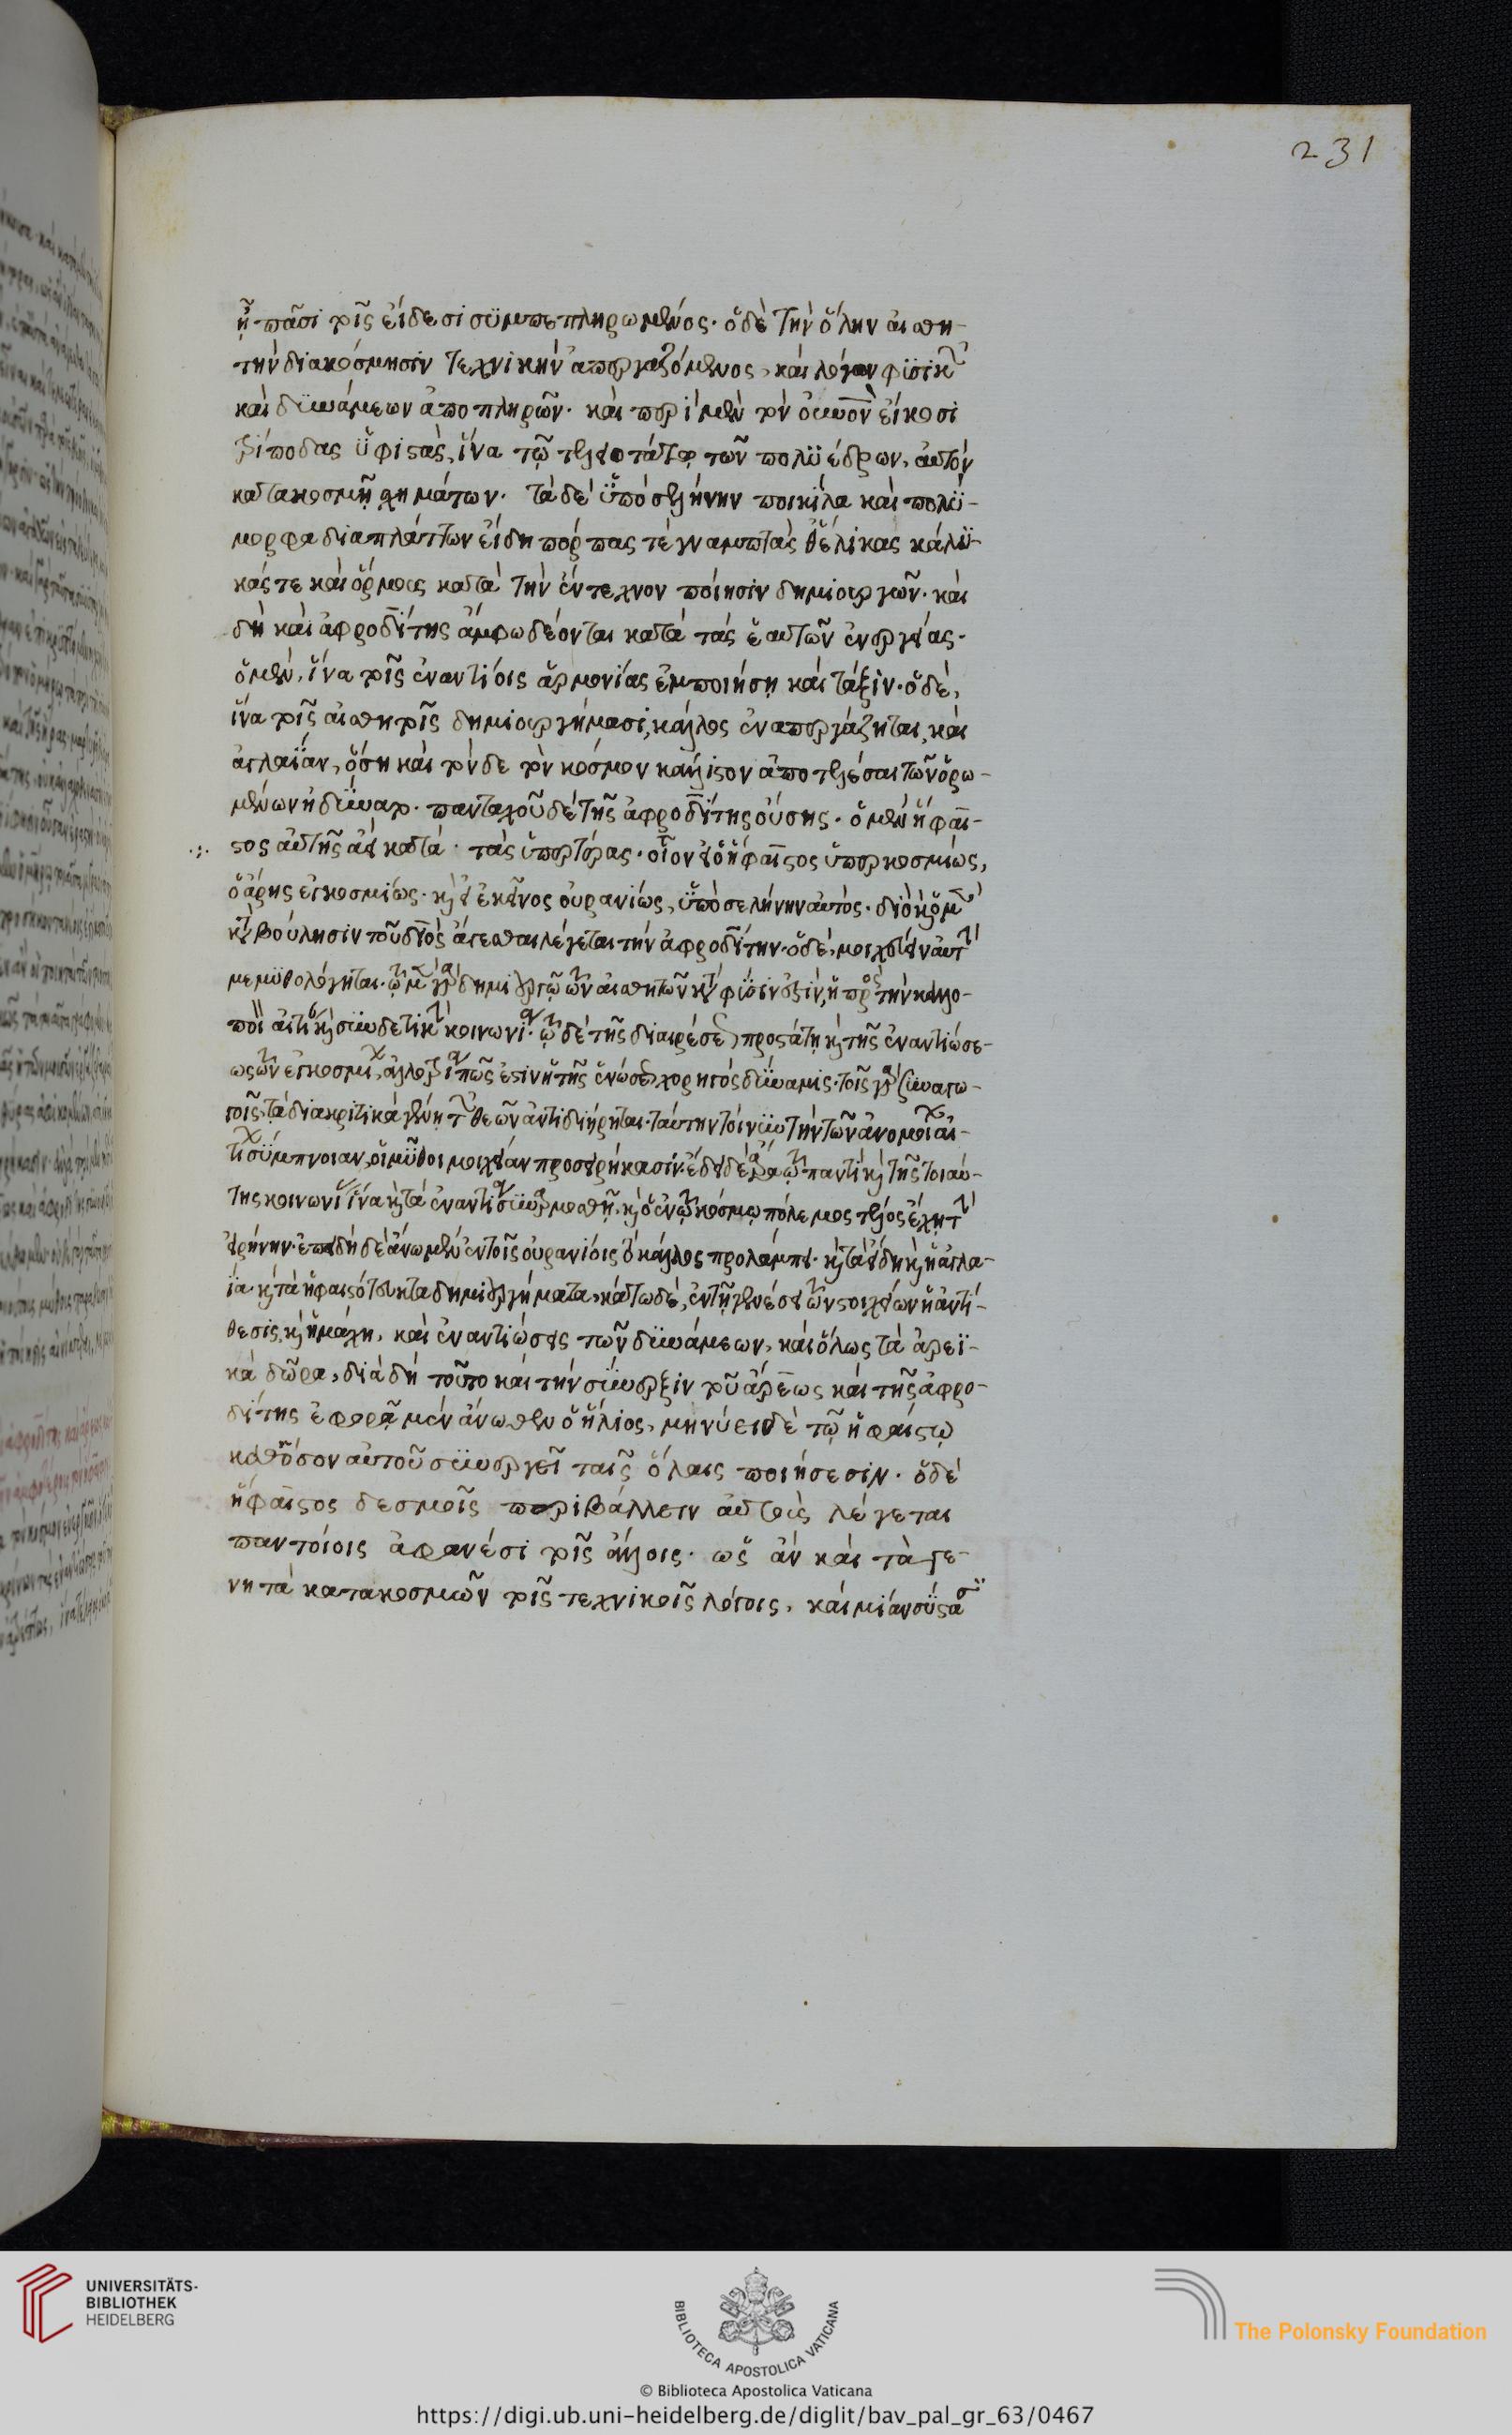 231
ἢ πᾶσι τοῖς εἴδεσι συμπεπληρωμένος. ὁ δὲ τὴν ὅλην αἰσθη-
τὴν διακόσμησιν τεχνικὴν ἀπεργαζόμενος, καὶ λόγων φυσικῶν
καὶ δυνάμεων ἀποπληρῶν. καὶ περὶ μὲν τὸν οὐνὸν εἴκοσι
τρίποδας ὑφιστὰς, ἵνα τῷ τελειοτάτῳ τῶν πολυέδρων, αὐτὸν
κατακοσμῇ σχημάτων. τὰ δὲ ὑπὸ σελήνην ποικίλα καὶ πολύ-
μορφα διαπλάττων εἴδη πόρπας τὲ γναμπτὰς θ' ἕλικας κάλυ-
κάς τε καὶ ὅρμους κατὰ τὴν ἔντεχνον ποίησιν δημιουργῶν. καὶ
δὴ καὶ ἀφροδίτης ἄμφω δέονται κατὰ τὰς ἑαυτῶν ἐνεργείας.
ὁ μὲν, ἵνα τοῖς ἐναντίοις ἁρμονίας ἐμποιήσῃ καὶ τάξιν. ὁ δὲ,
ἵνα τοῖς αἰσθητοῖς δημιουργήμασι, κάλλος ἐναπεργάζηται, καὶ
ἀγλαΐαν, ὅση καὶ τόνδε τὸν κόσμον κάλλιστον ἀποτελέσαι τῶν ὁρω-
μένων ἠδύνατο. πανταχοῦ δὲ τῆς ἀφροδίτης οὔσης. ὁ μὲν ἥφαι-
στος αὐτῆς ἀεὶ κατὰ τὰς ὑπερτέρας. οἷον εἰ ὁ ἥφαιστος ὑπερκοσμίως,
ὁ ἄρης ἐγκοσμίως. κὶ εἰ ἐκεῖνος οὐρανίως, ὑπὸ σελήνην αὐτὸς. διὸ κὶ ὁ μὲν
κατὰ βούλησιν τοῦ διὸς ἄγεσθαι λέγεται τὴν ἀφροδίτην. ὁ δὲ, μοιχεύειν αὐτὴν
μεμυθολόγηται. τῷ μὲν γὰρ δημιουργῷ τῶν αἰσθητῶν κατὰ φύσιν ἐστὶν, ἡ πρὸς τὴν καλλο-
ποιὸν αἰτίαν κὶ συνδετικὴν κοινωνία. τῷ δὲ τῆς διαιρέσεως προστάτῃ κὶ τῆς ἐναντιώσε-
ως τῶν ἐγκοσμίων, ἀλλοτρία πώς ἐστιν ἡ τῆς ἑνώσεως χορηγὸς δύναμις. τοῖς γὰρ συναγω-
γοῖς, τὰ διακριτικὰ γένη τῶν θεῶν ἀντιδιήρηται. ταύτην τοίνυν τὴν τῶν ἀνομοίων αἰ-
τίων σύμπνοιαν, οἱ μῦθοι μοιχείαν προσειρήκασιν. ἔδει δὲ ἄρα τῷ παντὶ κὶ τῆς τοιαύ-
της κοινωνίας ἵνα κὶ τὰ ἐναντία συναρμοσθῇ, κὶ ὁ ἐν τῷ κόσμῳ πόλεμος τέλος ἔχῃ τὴν
εἰρήνην. ἐπειδὴ δὲ ἄνω μὲν ἐν τοῖς οὐρανίοις τὸ κάλλος προλάμπει. κὶ τὰ εἴδη κὶ ἡ ἀγλα-
ΐα κὶ τὰ ἡφαιστότευκτα δημιουργήματα, κάτω δὲ, ἐν τῇ γενέσει ἡ τῶν στοιχείων ἡ ἀντί-
θεσις, κὶ ἡ μάχη, καὶ ἐναντίωσις τῶν δυνάμεων, καὶ ὅλως τὰ ἀρεϊ-
κὰ δῶρα, διὰ δὴ τοῦτο καὶ τὴν σύνερξιν τοῦ ἄρεως καὶ τῆς ἀφρο-
δίτης ἐφορᾷ μὲν ἄνωθεν ὁ ἥλιος, μηνύει δὲ τῷ ἡφαίστῳ
καθόσον αὐτοῦ συνεργεῖ ταῖς ὅλαις ποιήσεσιν. ὁ δὲ
ἥφαιστος δεσμοῖς περιβάλλειν αὐτοὺς λέγεται
παντοίοις ἀφανέσι τοῖς ἄλλοις. ὡς ἂν καὶ τὰ γε-
νητὰ κατακοσμῶν τοῖς τεχνικοῖς λόγοις, καὶ μίαν σύστασιν
UNIVERSITÄTS-
BIBLIOTHEK
HEIDELBERG
BIBLIOTECA APOSTOLICA VATICANA
© Biblioteca Apostolica Vaticana
The Polonsky Foundation
https://digi.ub.uni-heidelberg.de/diglit/bav_pal_gr_63/0467